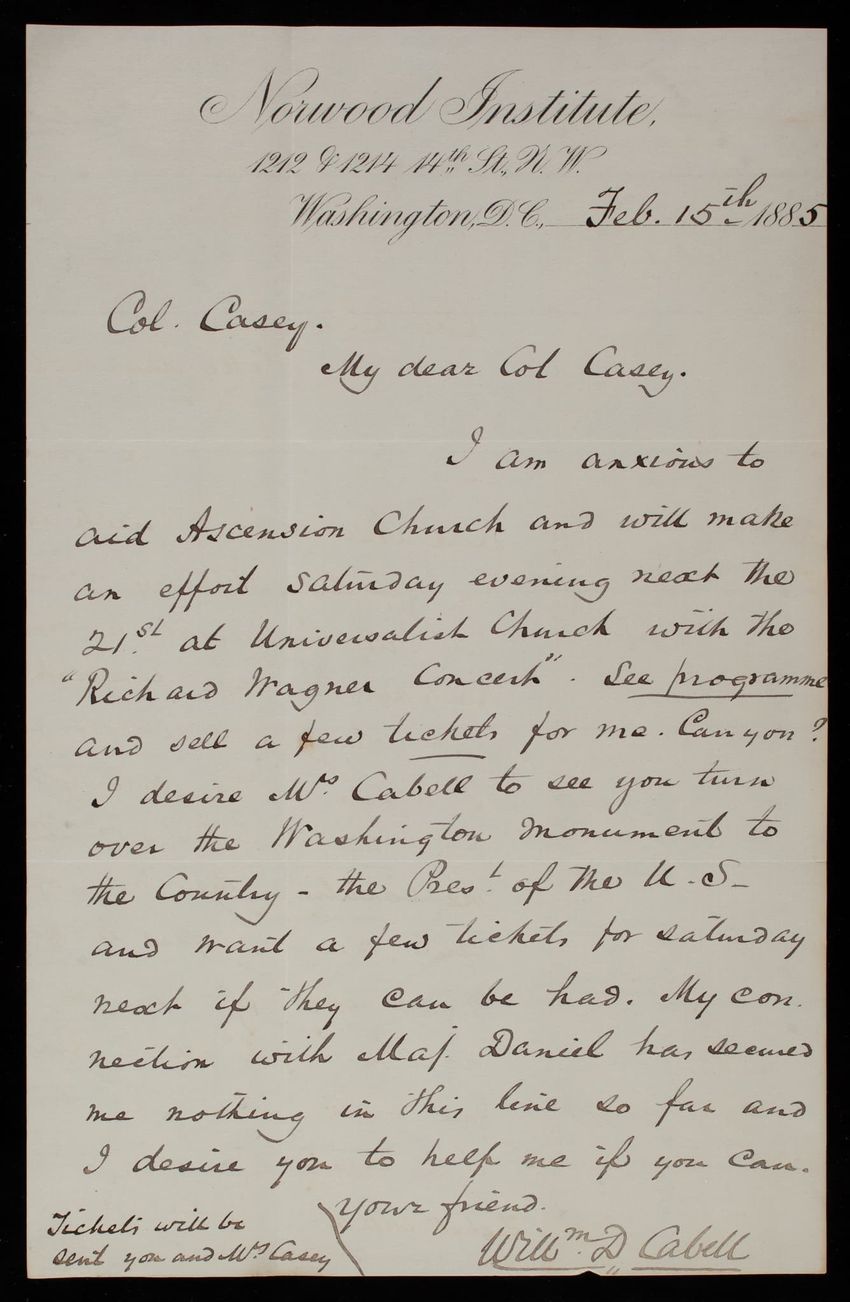 Norwood Institute,
1212 & 1214 14th St., N. W.
Washington, D. C., Feb. 15th 1885
Col. Casey.
My dear Col Casey.
I am anxious to
aid Ascension Church and will make
an effort Saturday evening next the
21.st at Universalist Church with the
"Richard Wagner Concert". See programme
and sell a few tickets for me. Can you?
I desire Mrs. Cabell to see you turn
over the Washington Monument to
the Country - the Prest. of the U. S -
and want a few tickets for Saturday
next if they can be had. My con-
nection with Maj. Daniel has secured
me nothing in this line so far and
I desire you to help me if you can.
Your friend.
Willm. D Cabell
Tickets will be
sent you and Mrs Casey